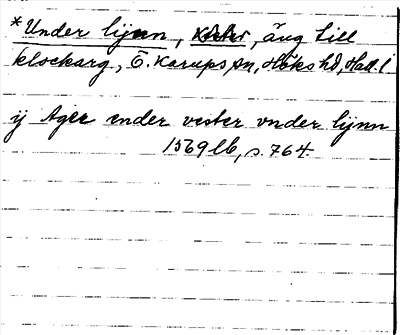 *Under lijnn, äng till
klockarg., Ö. Karups sn, Höks hd, Hall. l
ij Ager ender vester vnder lijnn
1569 lb, s. 764.